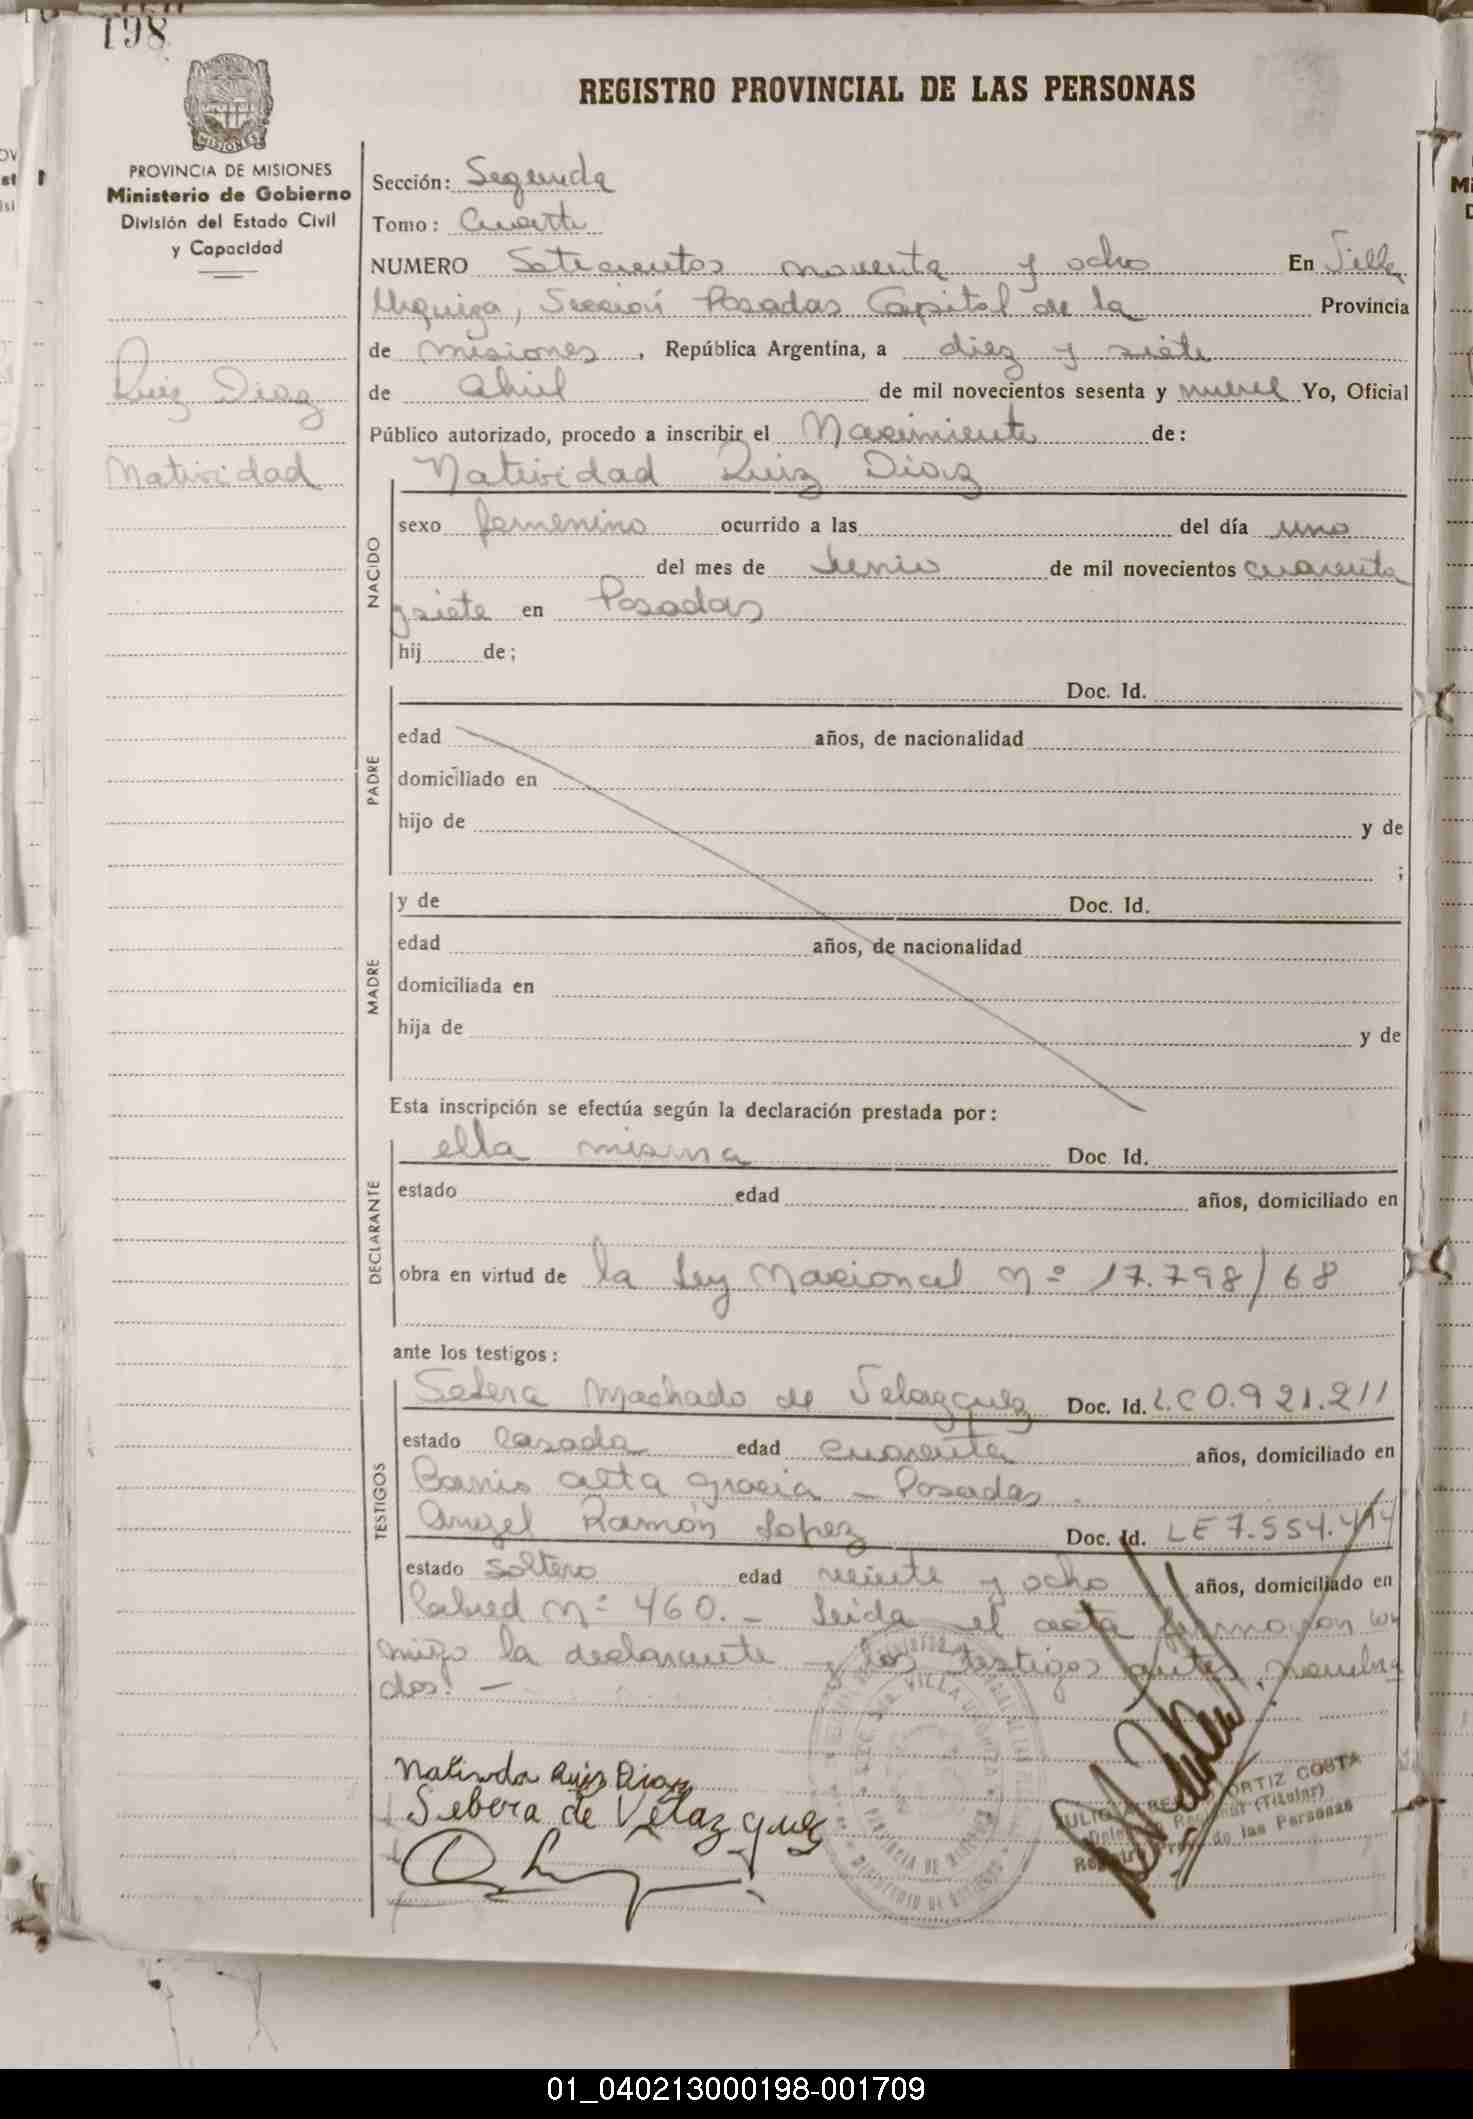 198
REGISTRO PROVINCIAL DE LAS PERSONAS
MISIONES
PROVINCIA DE MISIONES
Ministerio de Gobierno
División del Estado Civil
y Capacidad
Ruiz Diaz
Natividad
Sección: Segunda
Tomo: Cuarto
NUMERO Setecientos noventa y ocho En Villa
Urquiza, Sección Posadas Capital de la Provincia
de Misiones, República Argentina, a diez y siete
de Abril de mil novecientos sesenta y nueve Yo, Oficial
Público autorizado, procedo a inscribir el Nacimiento de:
Natividad Ruiz Diaz
NACIDO
sexo femenino ocurrido a las del día uno
del mes de Junio de mil novecientos cuarenta
y siete en Posadas
hij de;
PADRE
Doc. Id.
edad años, de nacionalidad
domiciliado en
hijo de y de
;
MADRE
y de Doc. Id.
edad años, de nacionalidad
domiciliada en
hija de y de
Esta inscripción se efectúa según la declaración prestada por:
DECLARANTE
ella misma Doc. Id.
estado edad años, domiciliado en
obra en virtud de la Ley Nacional Nº 17.798/68
ante los testigos:
TESTIGOS
Sebera Machado de Velazquez Doc. Id. L.C 0.921.211
estado Casada edad cuarenta años, domiciliado en
Barrio alta gracia - Posadas.
Angel Ramón Lopez Doc. Id. LE 7.554.414
estado soltero edad veinte y ocho años, domiciliado en
Cabred Nº 460. - Leida el acta firmaron con
migo la declarante y los testigos antes nombra
dos. -
Natividad Ruiz Diaz
Sebera de Velazquez
VILLA URQUIZA
PROVINCIA DE MISIONES
MINISTERIO DE GOBIERNO
ORTIZ COSTA
(Titular)
de las Personas
01_040213000198-001709